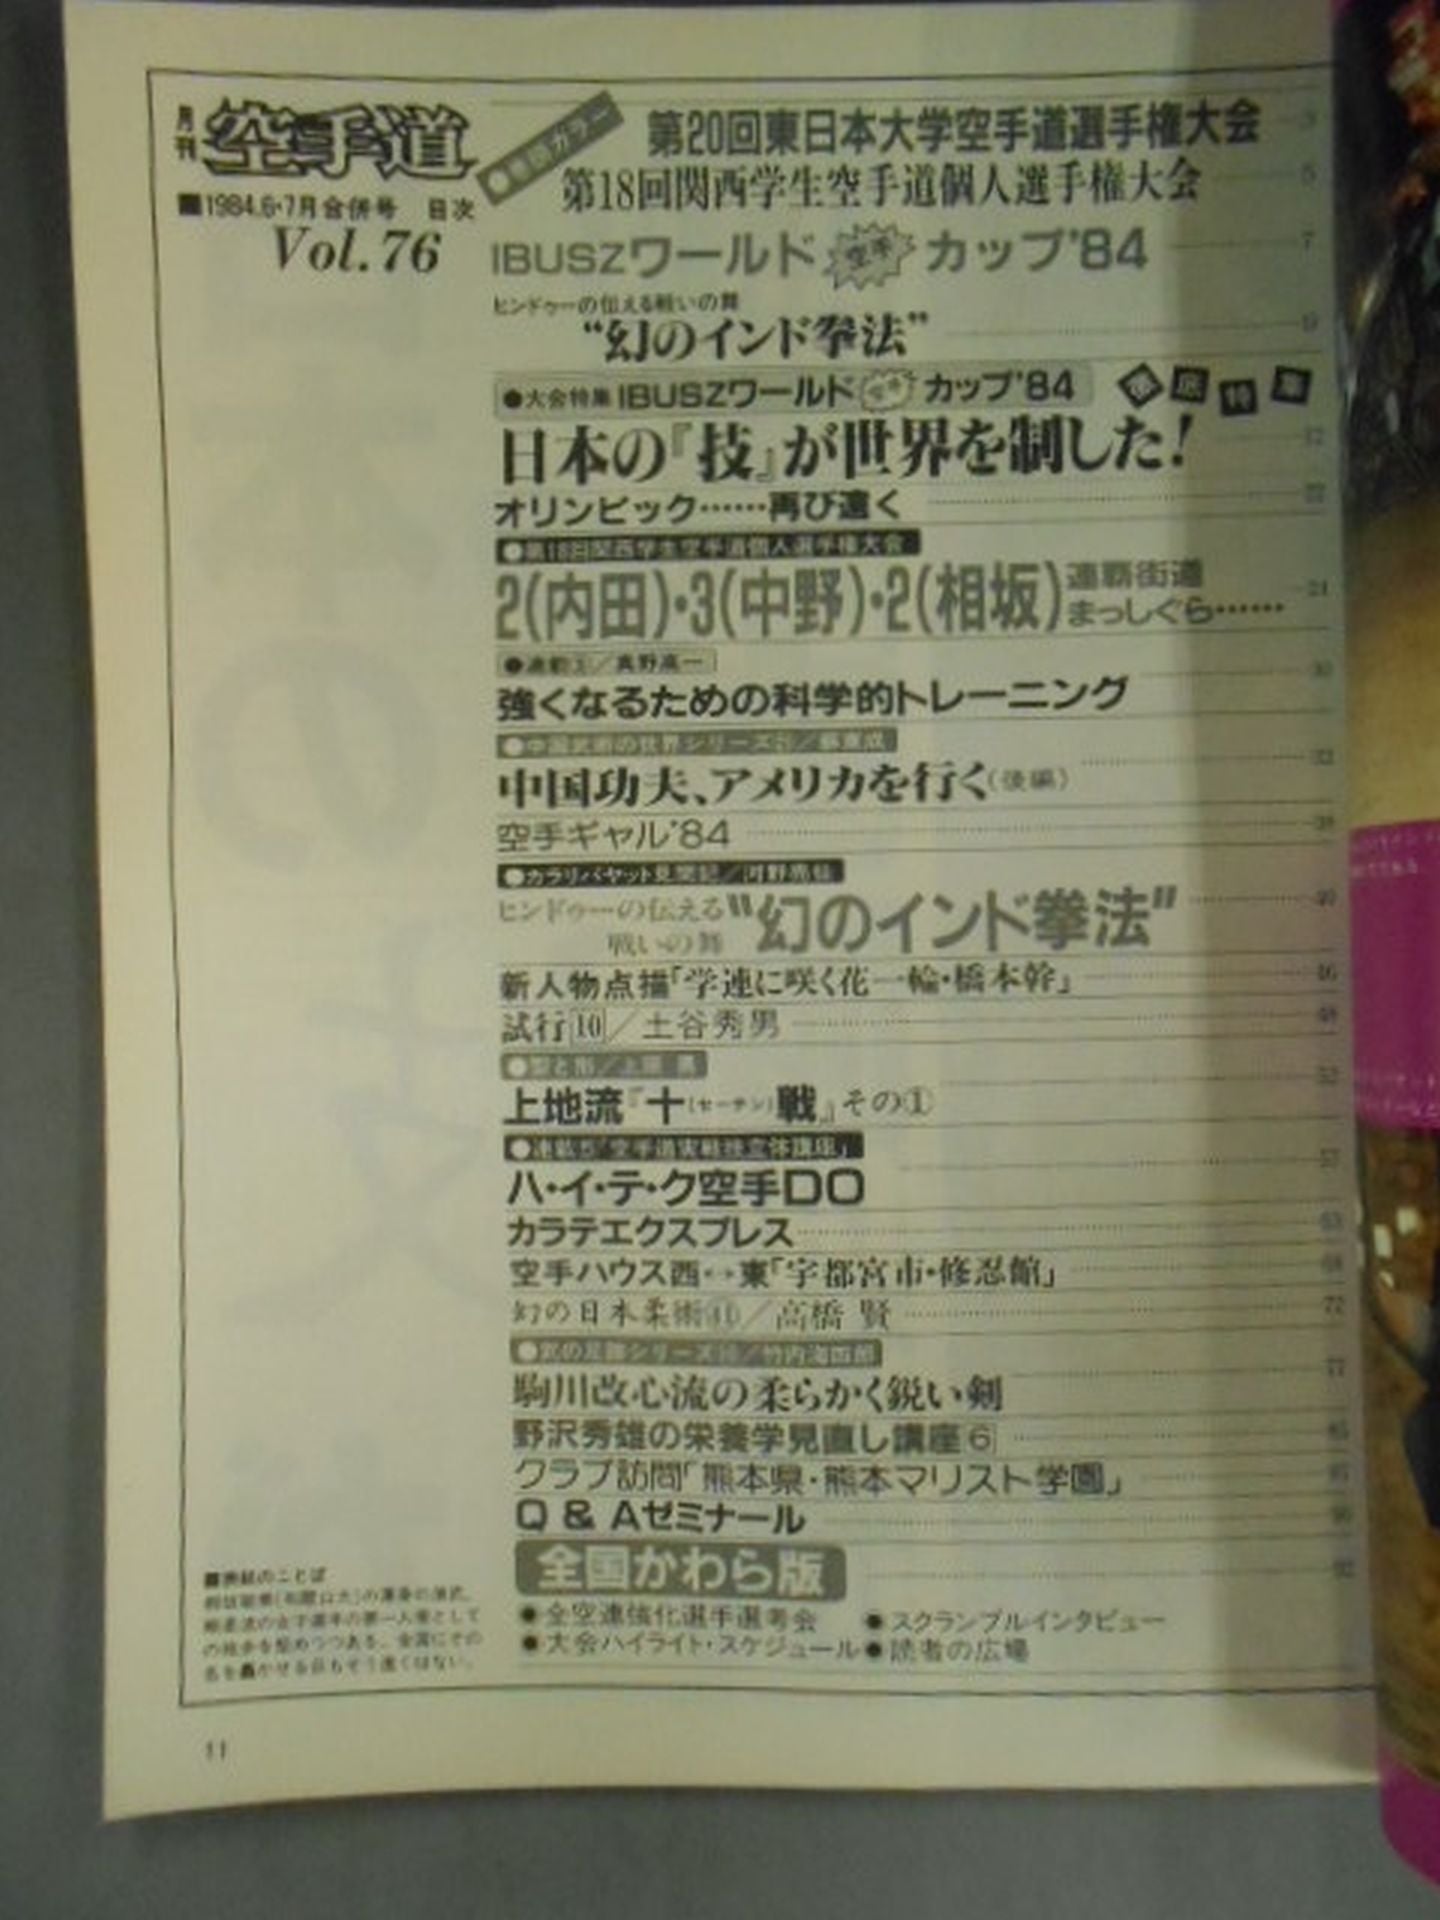 月刊 空手道
■1984.6・7月合併号 目次
Vol.76
第20回東日本大学空手道選手権大会
第18回関西学生空手道個人選手権大会 5
IBUSZワールド空手カップ'84 7
ヒンドゥーの伝える戦いの舞
“幻のインド拳法” 9
●大会特集 IBUSZワールド空手カップ'84 徹底特集
日本の『技』が世界を制した! 12
オリンピック……再び遠く 22
●第18回関西学生空手道個人選手権大会
2(内田)・3(中野)・2(相坂)連覇街道まっしぐら…… 24
強くなるための科学的トレーニング 30
●中国武術の世界シリーズ
中国功夫、アメリカを行く(後編)
空手ギャル'84
●カラリパヤット見聞記/河野亮仙
ヒンドゥーの伝える戦いの舞“幻のインド拳法” 40
新人物点描「学連に咲く花一輪・橋本幹」 46
試行10/土谷秀男 48
上地流『十(セーサン)戦』その① 52
●連載5「空手道実戦技立体講座」
ハ・イ・テ・ク空手DO 57
カラテエクスプレス 63
空手ハウス西↔東「宇都宮市・修忍館」
幻の日本柔術㊶/高橋 賢 72
駒川改心流の柔らかく鋭い剣 77
野沢秀雄の栄養学見直し講座6
クラブ訪問「熊本県・熊本マリスト学園」
Q & Aゼミナール 90
全国かわら版 92
●全空連強化選手選考会 ●スクランブルインタビュー
●大会ハイライト・スケジュール ●読者の広場
■表紙のことば
の地歩を堅めつつある。全国にその
名を轟かせる日もそう遠くはない。
11